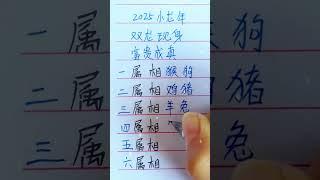 2025小龙年
双龙现身
富贵成真
一属相猴狗
二属相鸡猪
三属相羊兔
四属相
五属相
六属相